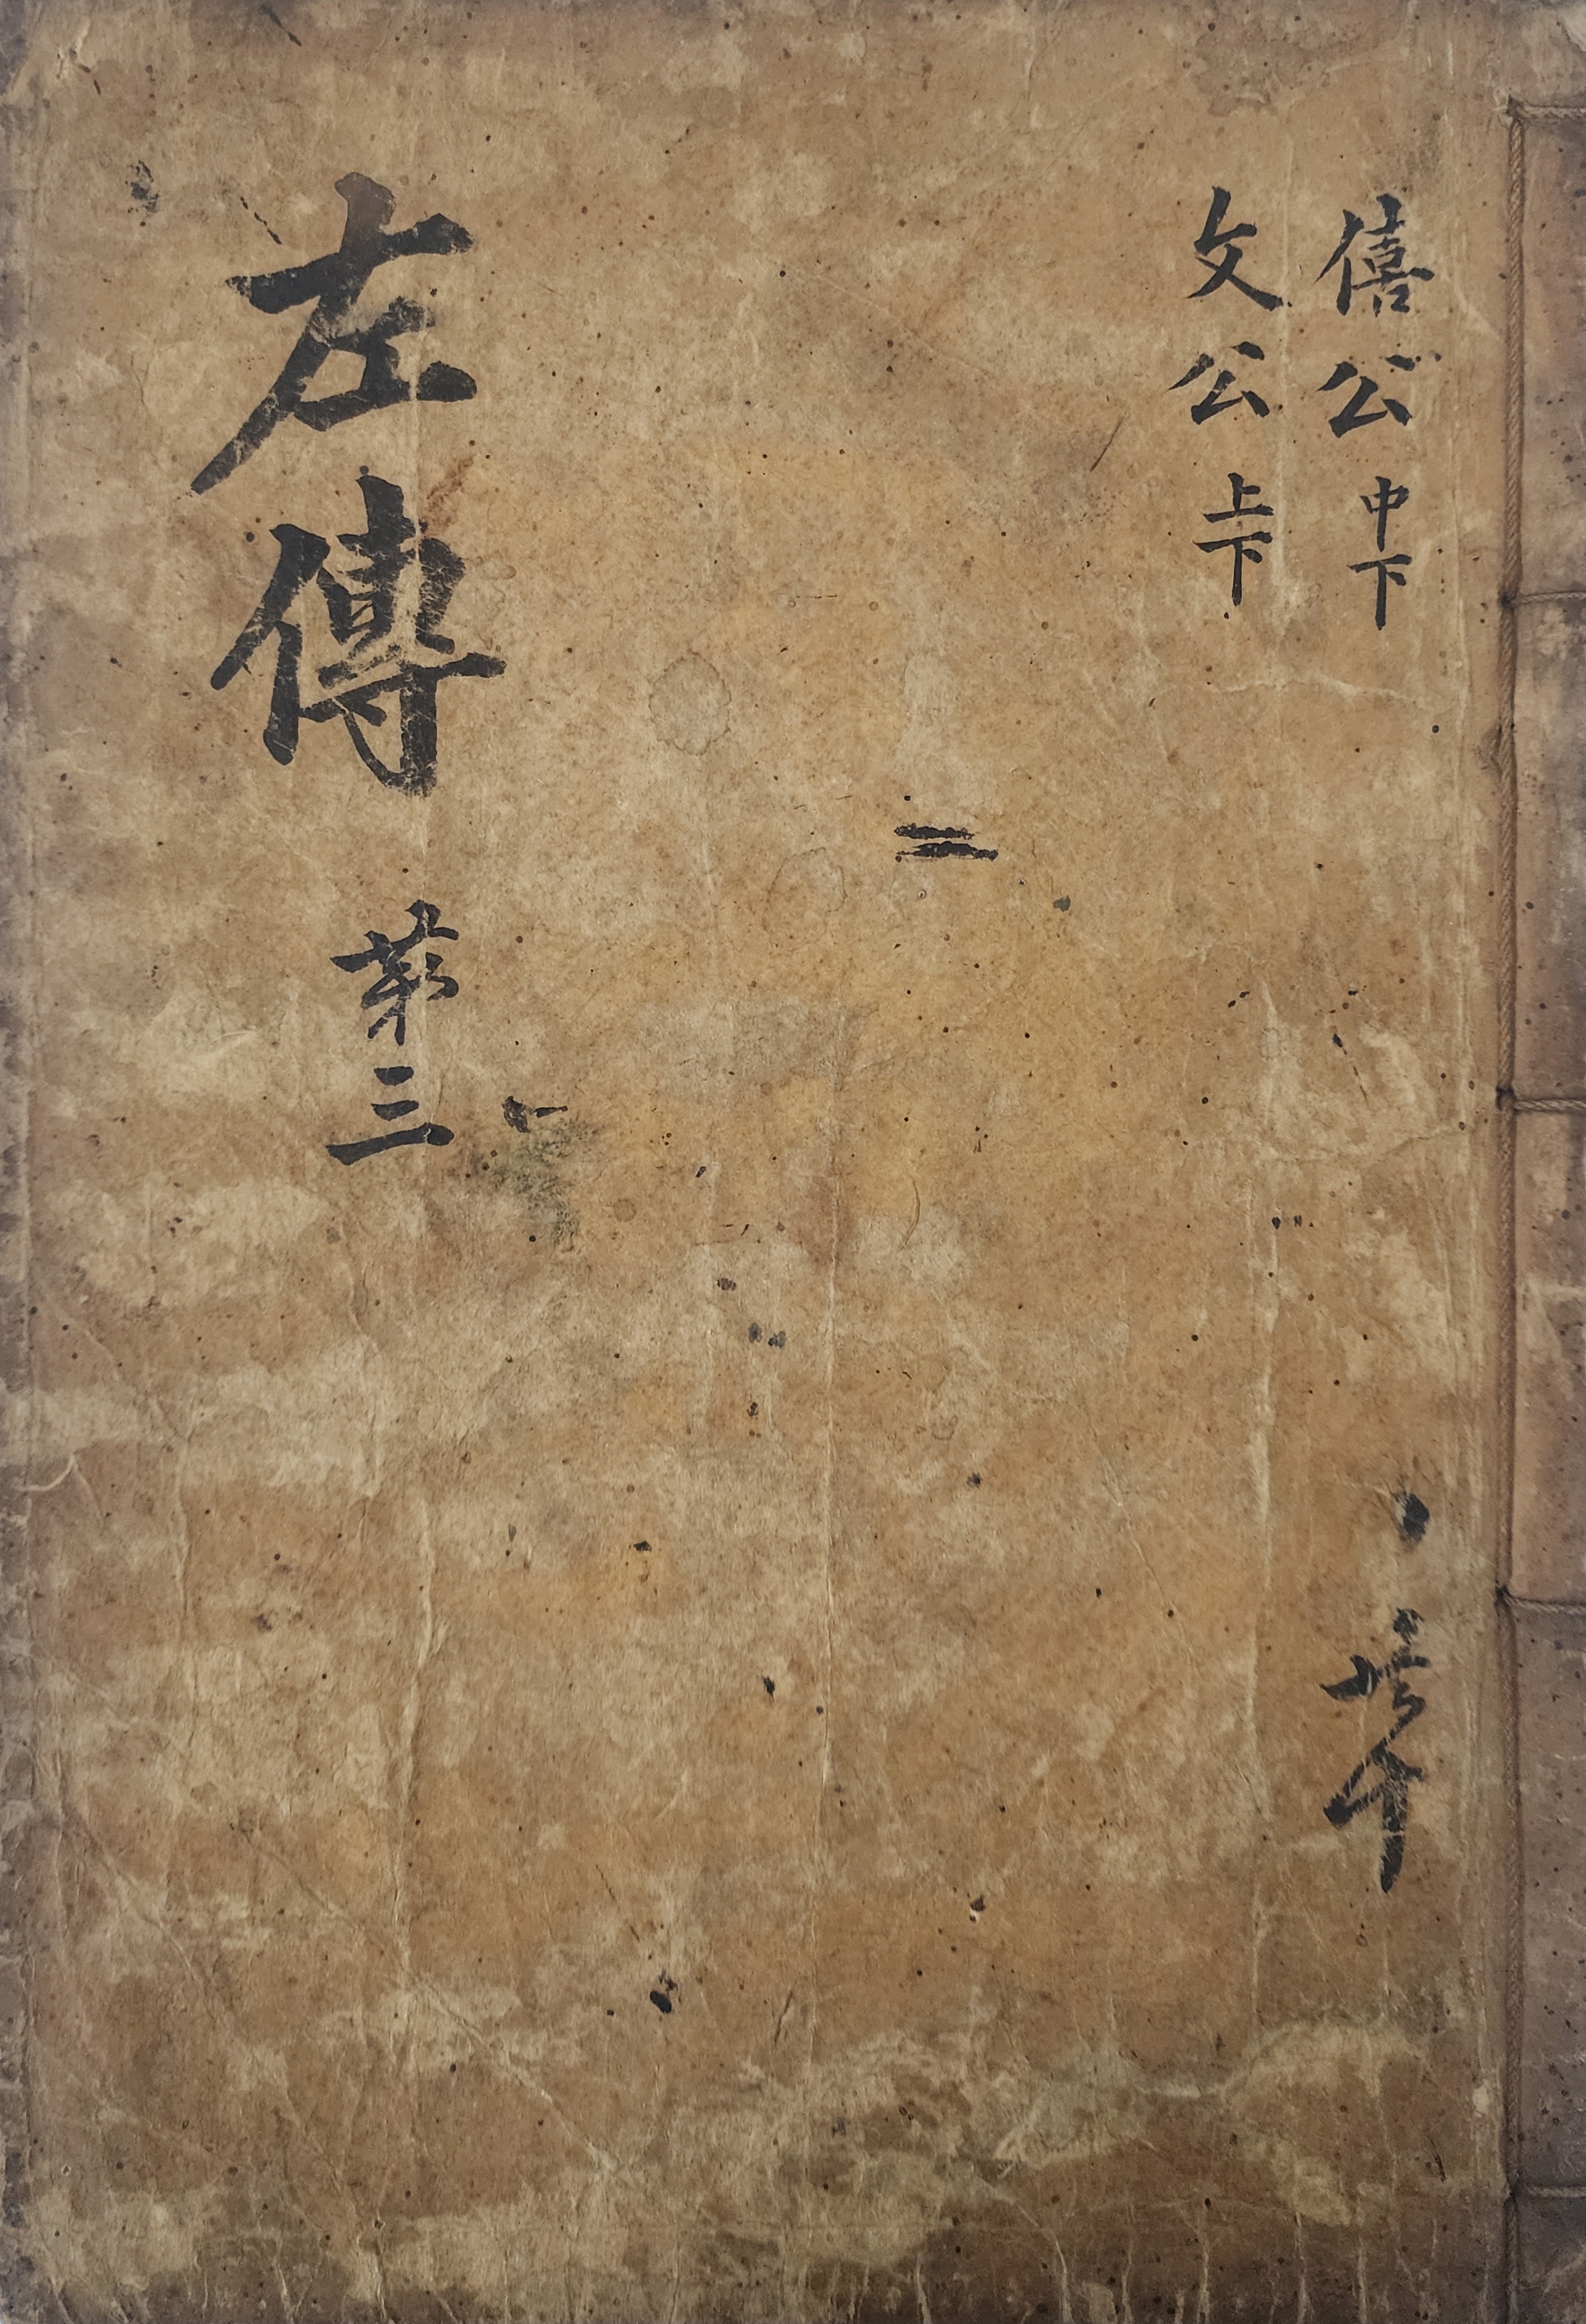 僖公 中下
文公 上下
左傳 第三